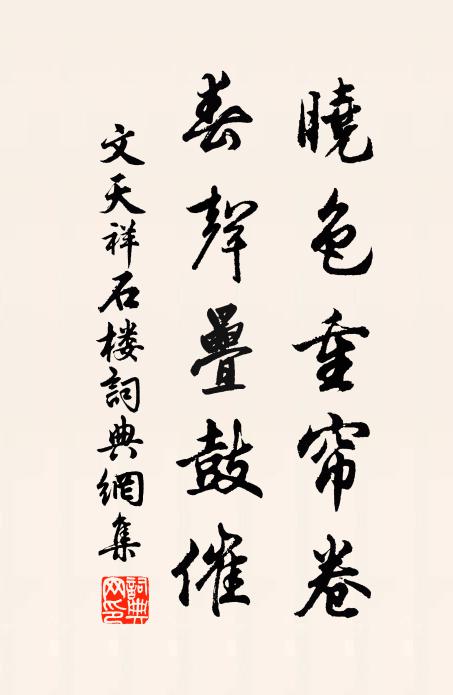 曉色重帘卷
春聲疊鼓催
文天祥石楼詞典網集
詞典网印